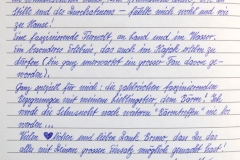 Stille und des Einsbaluns – fühlte mich nicht und nie
zu Hause!
Eine faszinierende Tierwelt, an Land und im Wasser.
Ein besonderes Erlebnis, das auch im Kajak erleben zu
dürfen (bin ganz unerwartet ein grosser Fan davon ge-
worden).
Ganz speziell für mich: die zahlreichen faszinierenden
Begegnungen mit meinem Lieblingstier, dem Bären! Ich
werde die Sehnsucht nach weiteren "Bärentreffen" nie los
werden...
Vielen ♥ lichen und lieben Dank Bruno, dass Du das
alles mit Deinem grossen Einsatz möglich gemacht hast!